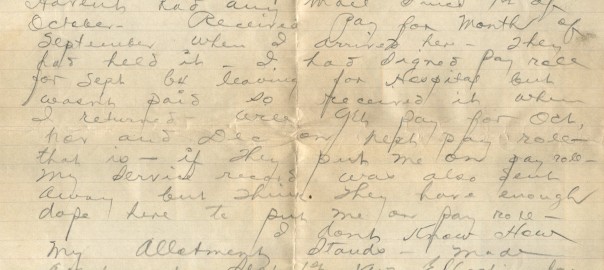 Havent had any Mail since 1st of
October - Received Pay for Month of
September when I arrived here - They
had held it - I had signed Pay role
for Sept be leaving for Hospital but
wasnt paid so received it when
I returned - will get pay for Oct,
Nov and Dec on next pay role -
that is - if They put me on pay role -
My service record was also sent
away but Think They have enough
dope here to put me on pay role -
I dont Know How
My Allotment Stands - Made